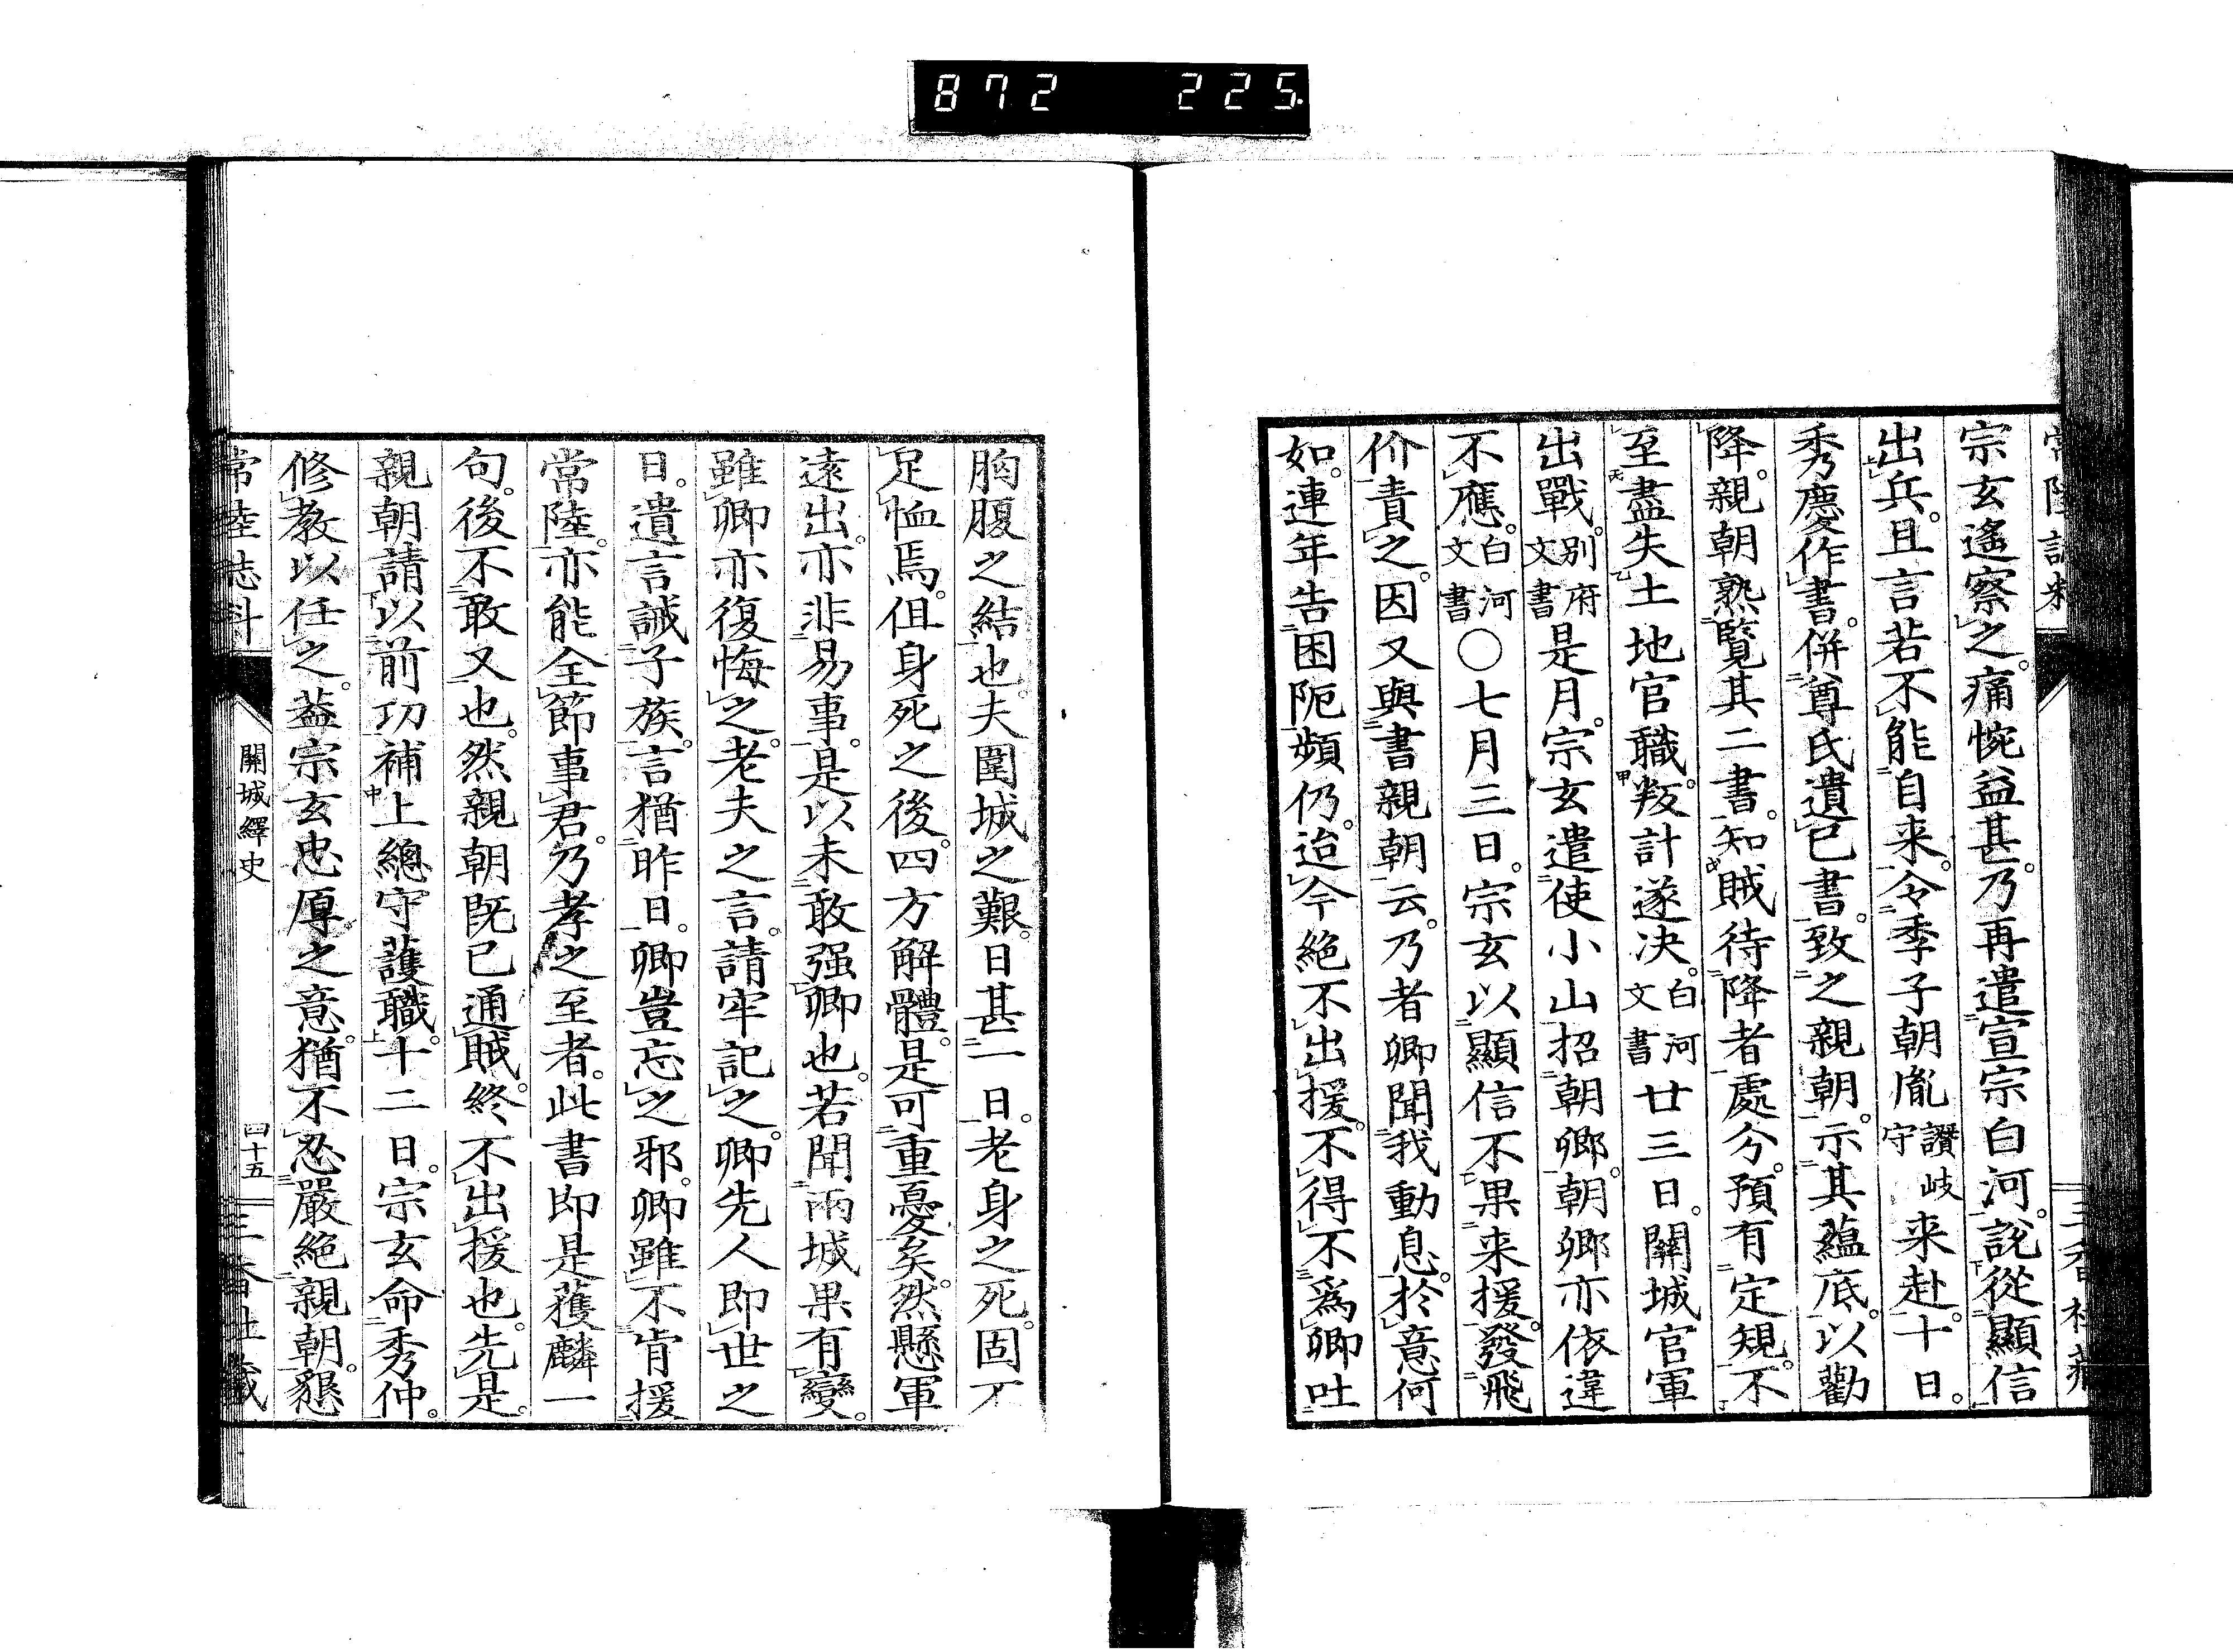 872 225
宗玄遙察之。痛惋益甚。乃再遣宣宗白河。説從顯信
出兵。且言若不能自来。令季子朝胤讃岐守来赴。十日。
秀慶作書。併尊氏遺已書。致之親朝。示其蘊底。以勸
降。親朝熟覽其二書。知賊待降者處分。預有定規。不
至盡失土地官職。叛計遂决。白河文書廿三日。關城官軍
出戰。別府文書是月。宗玄遣使小山招朝郷。朝郷亦依違
不應。白河文書〇七月三日。宗玄以顯信不果来援。發飛
价責之。因又與書親朝云。乃者卿聞我動息。於意何
如。連年告困阨頻仍。迨今絶不出援。不得不爲卿吐
胸腹之結也。夫圍城之艱。日甚一日。老身之死。固不
足恤焉。但身死之後。四方解體。是可重憂矣。然懸軍
遠出。亦非易事。是以未敢强卿也。若聞兩城果有變。
雖卿亦復悔之。老夫之言。請牢記之。卿先人即世之
日。遺言誡子族。言猶昨日。卿豈忘之邪。卿雖不肯援
常陸。亦能全節事君。乃孝之至者。此書即是獲麟一
句。後不敢又也。然親朝既已通賊。終不出援也。先是。
親朝請以前功補上總守護職。十二日。宗玄命秀仲。
修教以任之。蓋宗玄忠厚之意。猶不忍嚴絶親朝。懇
常陸誌料
關城繹史
四十五